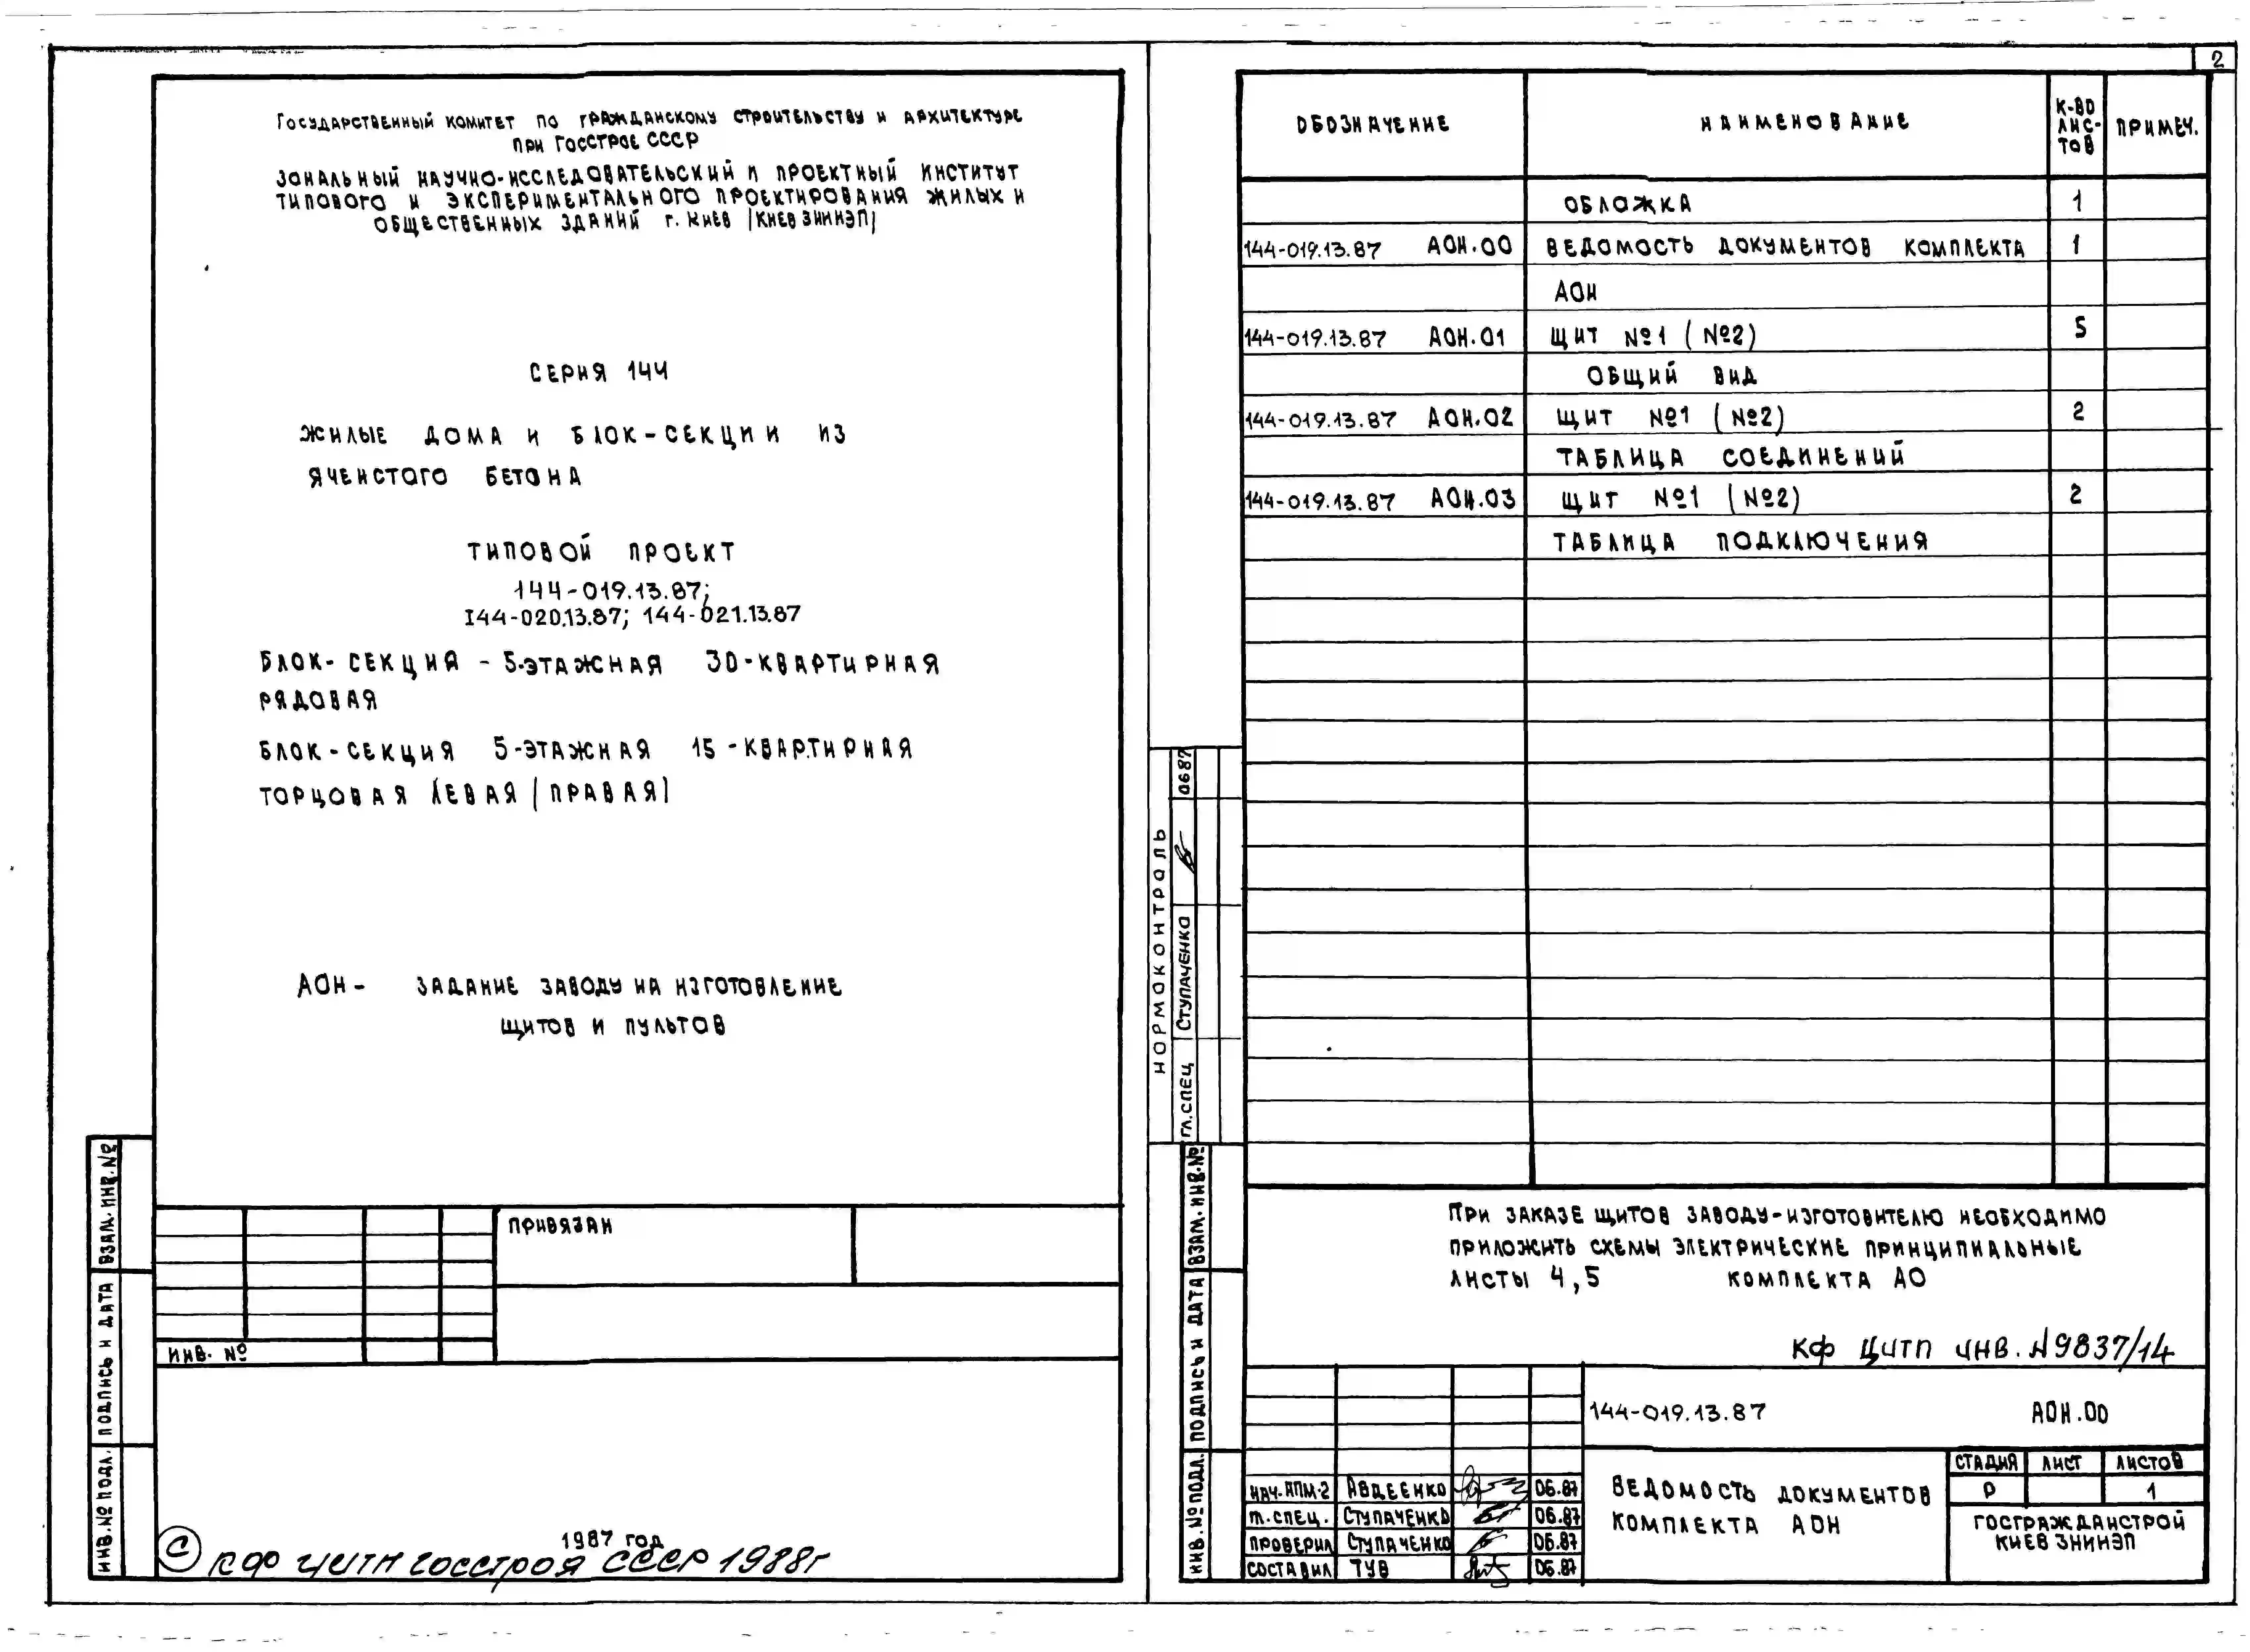 Государственный комитет по гражданскому строительству и архитектуре
при Госстрое СССР
Зональный научно-исследовательский и проектный институт
типового и экспериментального проектирования жилых и
общественных зданий г. Киев (КиевЗНИИЭП)
Серия 144
жилые дома и блок-секции из
ячеистого бетона
Типовой проект
144-019.13.87;
144-020.13.87; 144-021.13.87
Блок-секция - 5-этажная 30-квартирная
рядовая
Блок-секция 5-этажная 15-квартирная
торцовая левая (правая)
АОН - задание заводу на изготовление
щитов и пультов
Привязан
Инв. №
Взам. инв. №
Подпись и дата
Инв. № подл.
1987 год
© КФ ЦИТП Госстроя СССР 1988г
2
Обозначение Наименование К-во лис-тов Примеч.
Обложка 1
144-019.13.87 АОН.00 Ведомость документов комплекта 1
АОН
144-019.13.87 АОН.01 Щит №1 (№2) 5
Общий вид
144-019.13.87 АОН.02 Щит №1 (№2) 2
Таблица соединений
144-019.13.87 АОН.03 Щит №1 (№2) 2
Таблица подключения
Нормоконтроль
Гл.спец Ступаченко 0687
Взам. инв. №
Подпись и дата
Инв. № подл.
При заказе щитов заводу-изготовителю необходимо
приложить схемы электрические принципиальные
листы 4,5 комплекта АО
КФ ЦИТП инв. №9837/14
144-019.13.87 АОН.00
Нач. АПМ-2 Авдеенко 06.87
Гл. спец. Ступаченко 06.87
Проверил Ступаченко 06.87
Составил Тув 06.87
Ведомость документов
комплекта АОН
Стадия Лист Листов
Р 1
Госгражданстрой
КиевЗНИИЭП